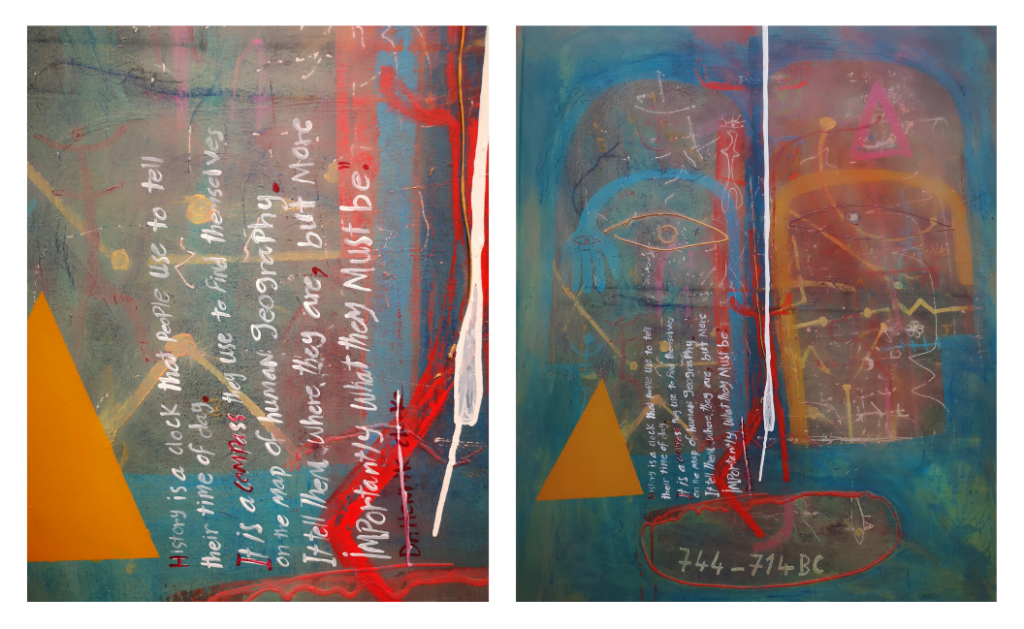 History is a clock that people use to tell
their time of day.
It is a compass they use to find themselves
on the map of human geography.
It tell them where, they are, but More
Importantly What they Must be."
History is a clock that people use to tell
their time of day.
It is a compass they use to find themselves
on the map of human geography.
It tell them where, they are, but More
Importantly What they Must be.
744 – 714 BC